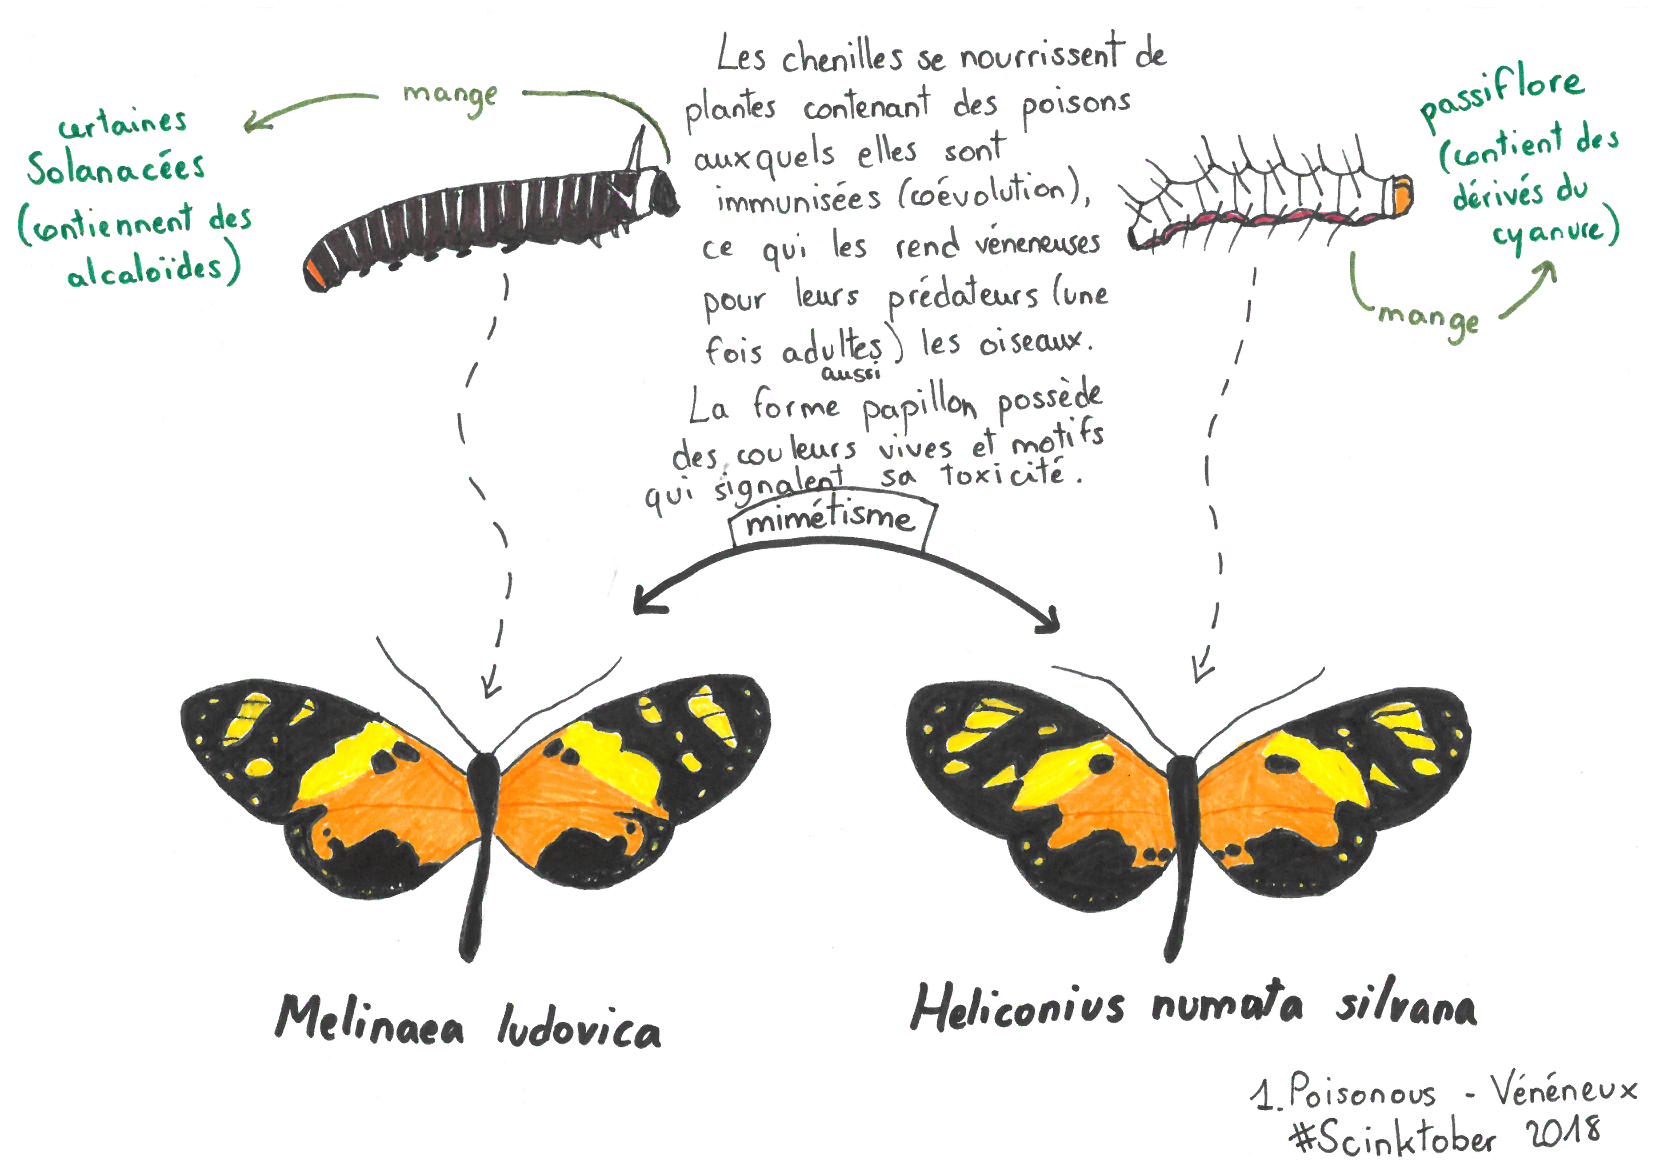 certaines
Solanacées
(contiennent des
alcaloïdes)
mange
Les chenilles se nourrissent de
plantes contenant des poisons
auxquels elles sont
immunisées (coévolution),
ce qui les rend véneneuses
pour leurs prédateurs (une
fois adultes) les oiseaux.
aussi
La forme papillon possède
des couleurs vives et motifs
qui signalent sa toxicité.
passiflore
(contient des
dérivés du
cyanure)
mange
mimétisme
Melinaea ludovica
Heliconius numata silvana
1. Poisonous - Vénéneux
#Scinktober 2018